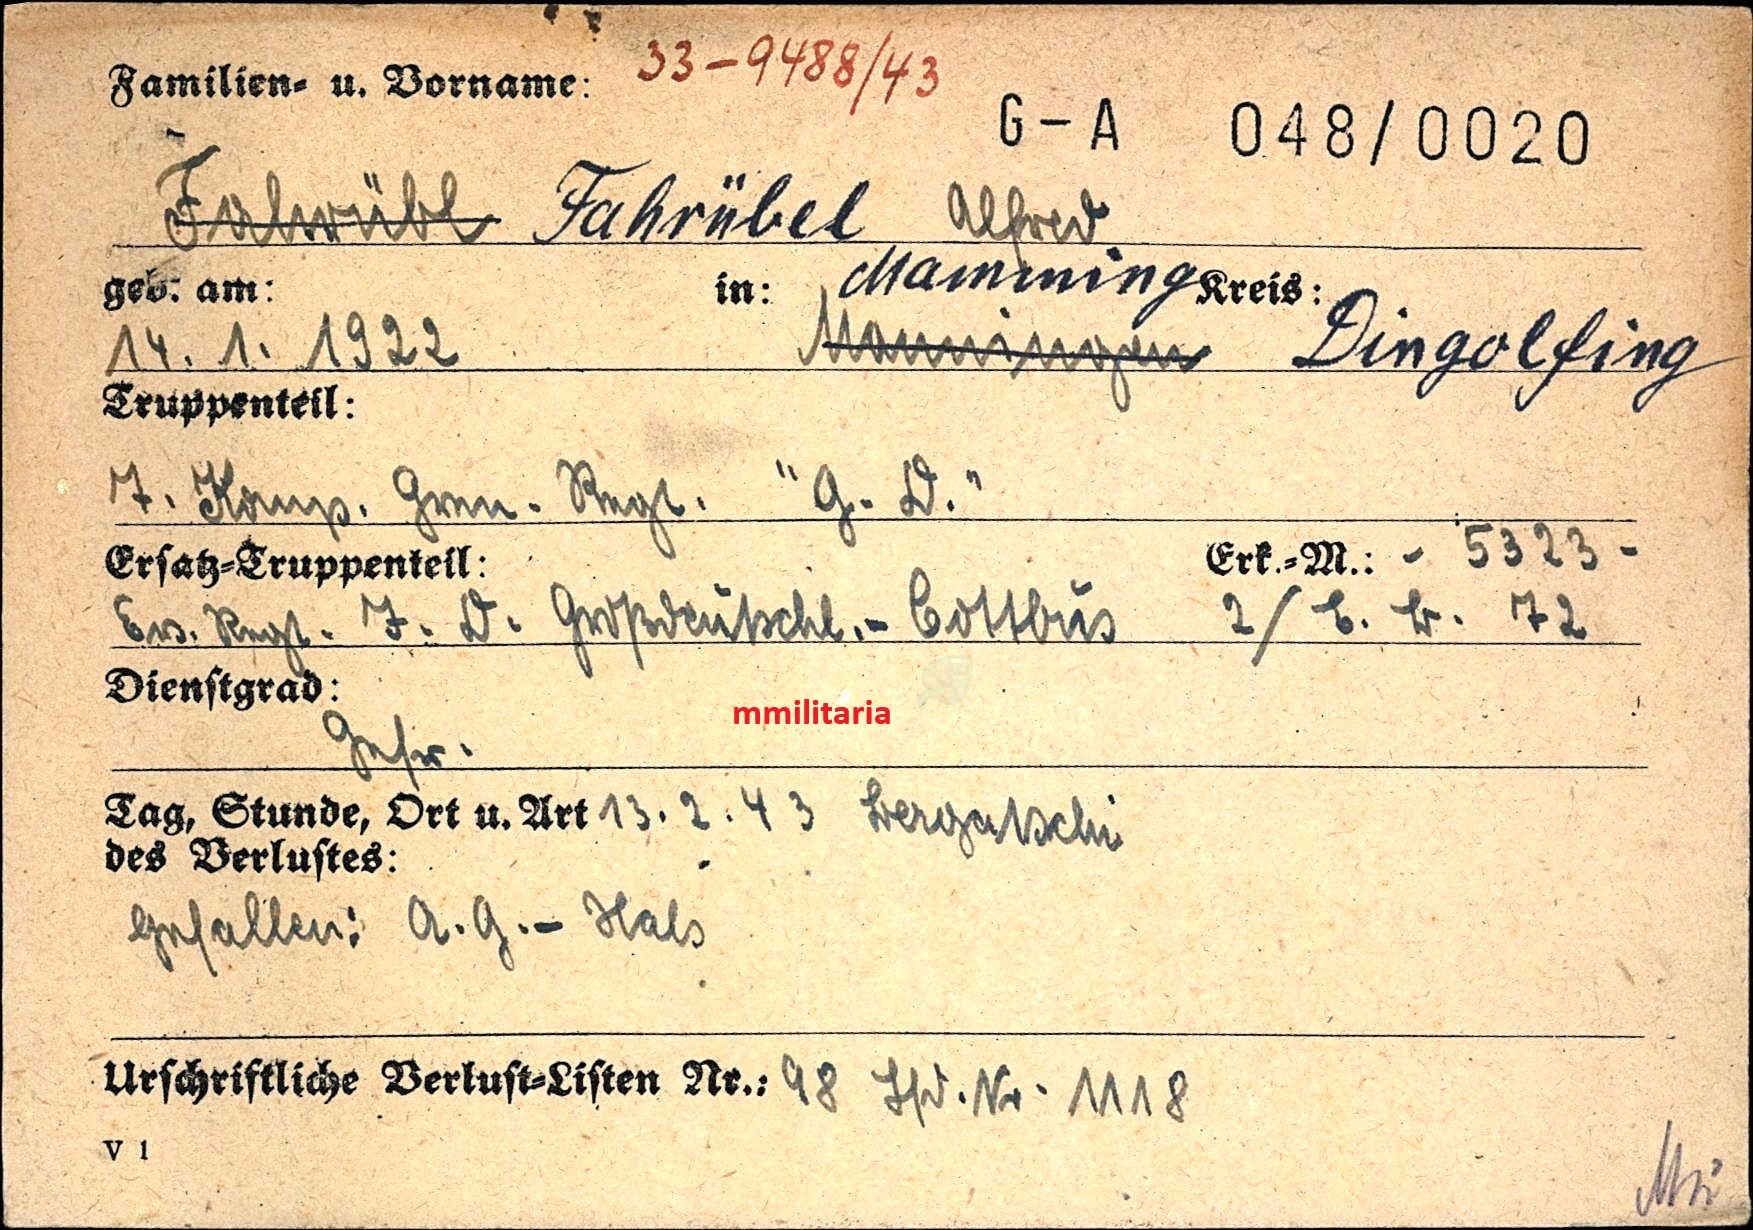 33-9488/43
Familien- u. Vorname:
G-A 048/0020
Fahrübl Fahrübel Alfred
geb. am: in: Mamming Kreis:
14. 1. 1922 Manningen Dingolfing
Truppenteil:
7. Komp. Gren.- Regt. "G.- D."
Ersatz-Truppenteil: Erk.-M.: - 5323 -
Ers. Regt. I. D. Großdeutschl.- Cottbus 2/ E. B. 72
Dienstgrad:
mmilitaria
Gefr.
Tag, Stunde, Ort u. Art 13. 2. 43 Bergatschi
des Verlustes:
gefallen: A.G.- Hals
Urschriftliche Verlust-Listen Nr.: 98 Lfd. Nr. 1118
V 1